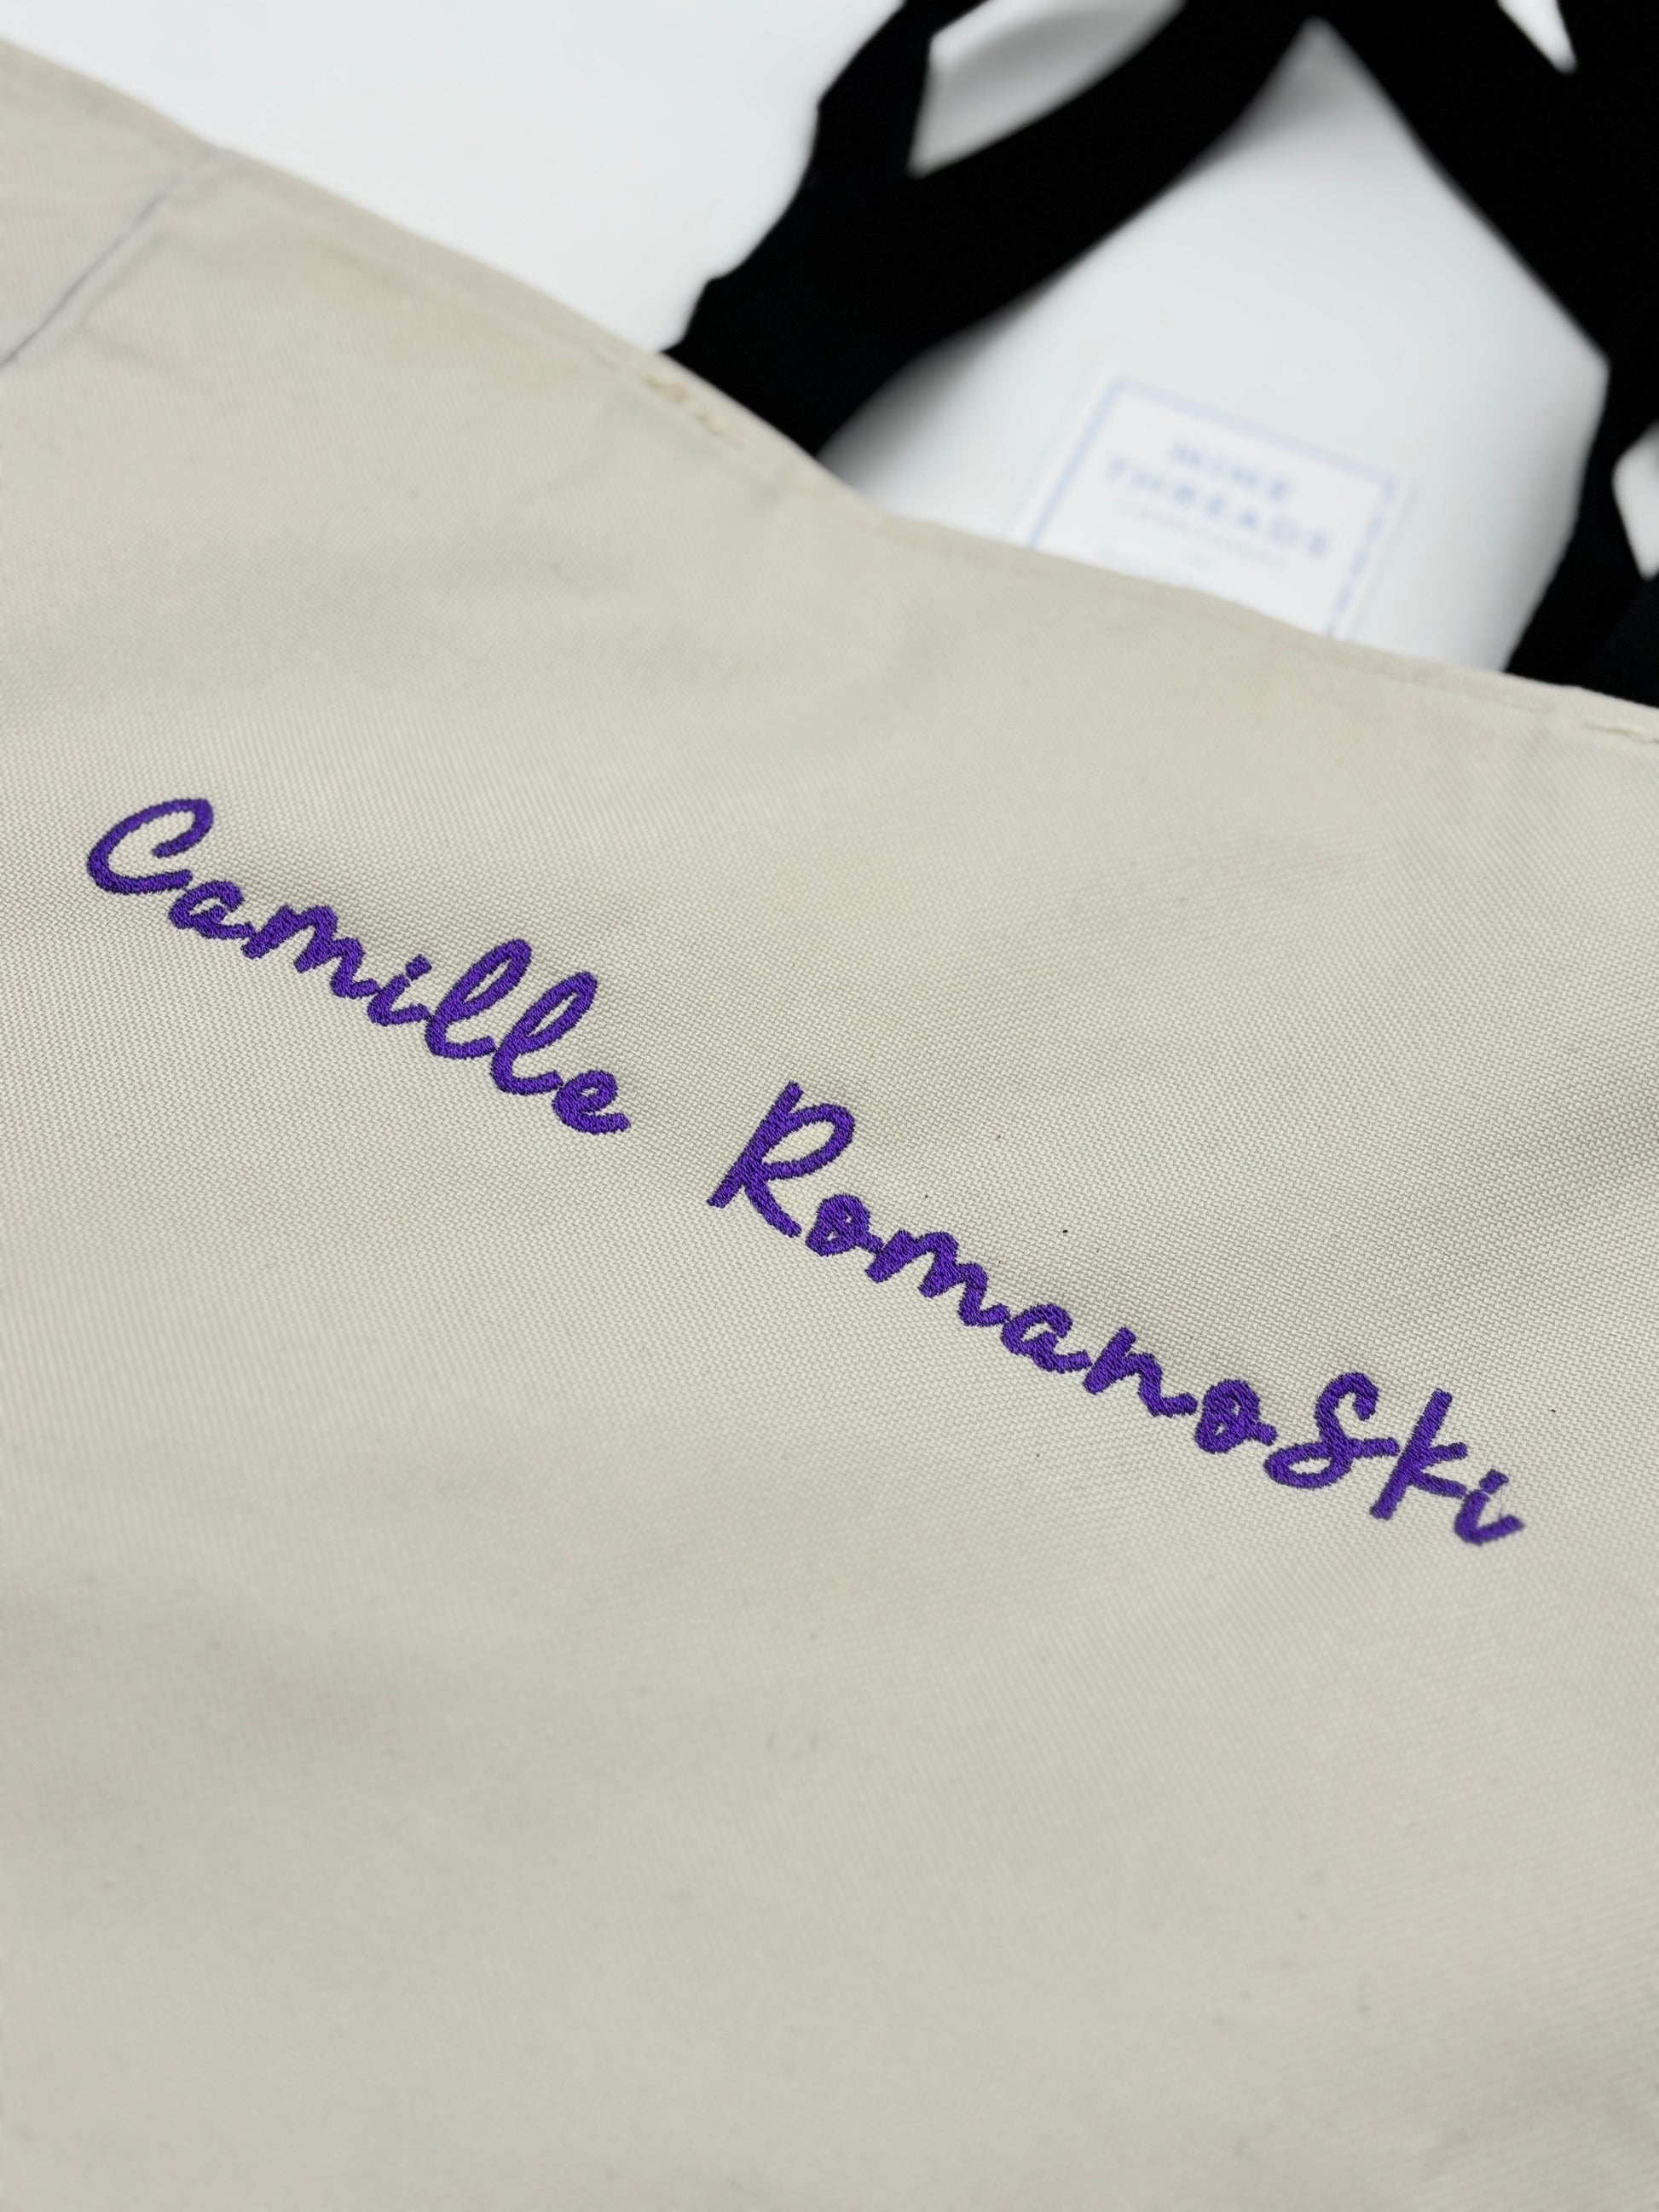 NINE
THREADS
Camille RomanoSki